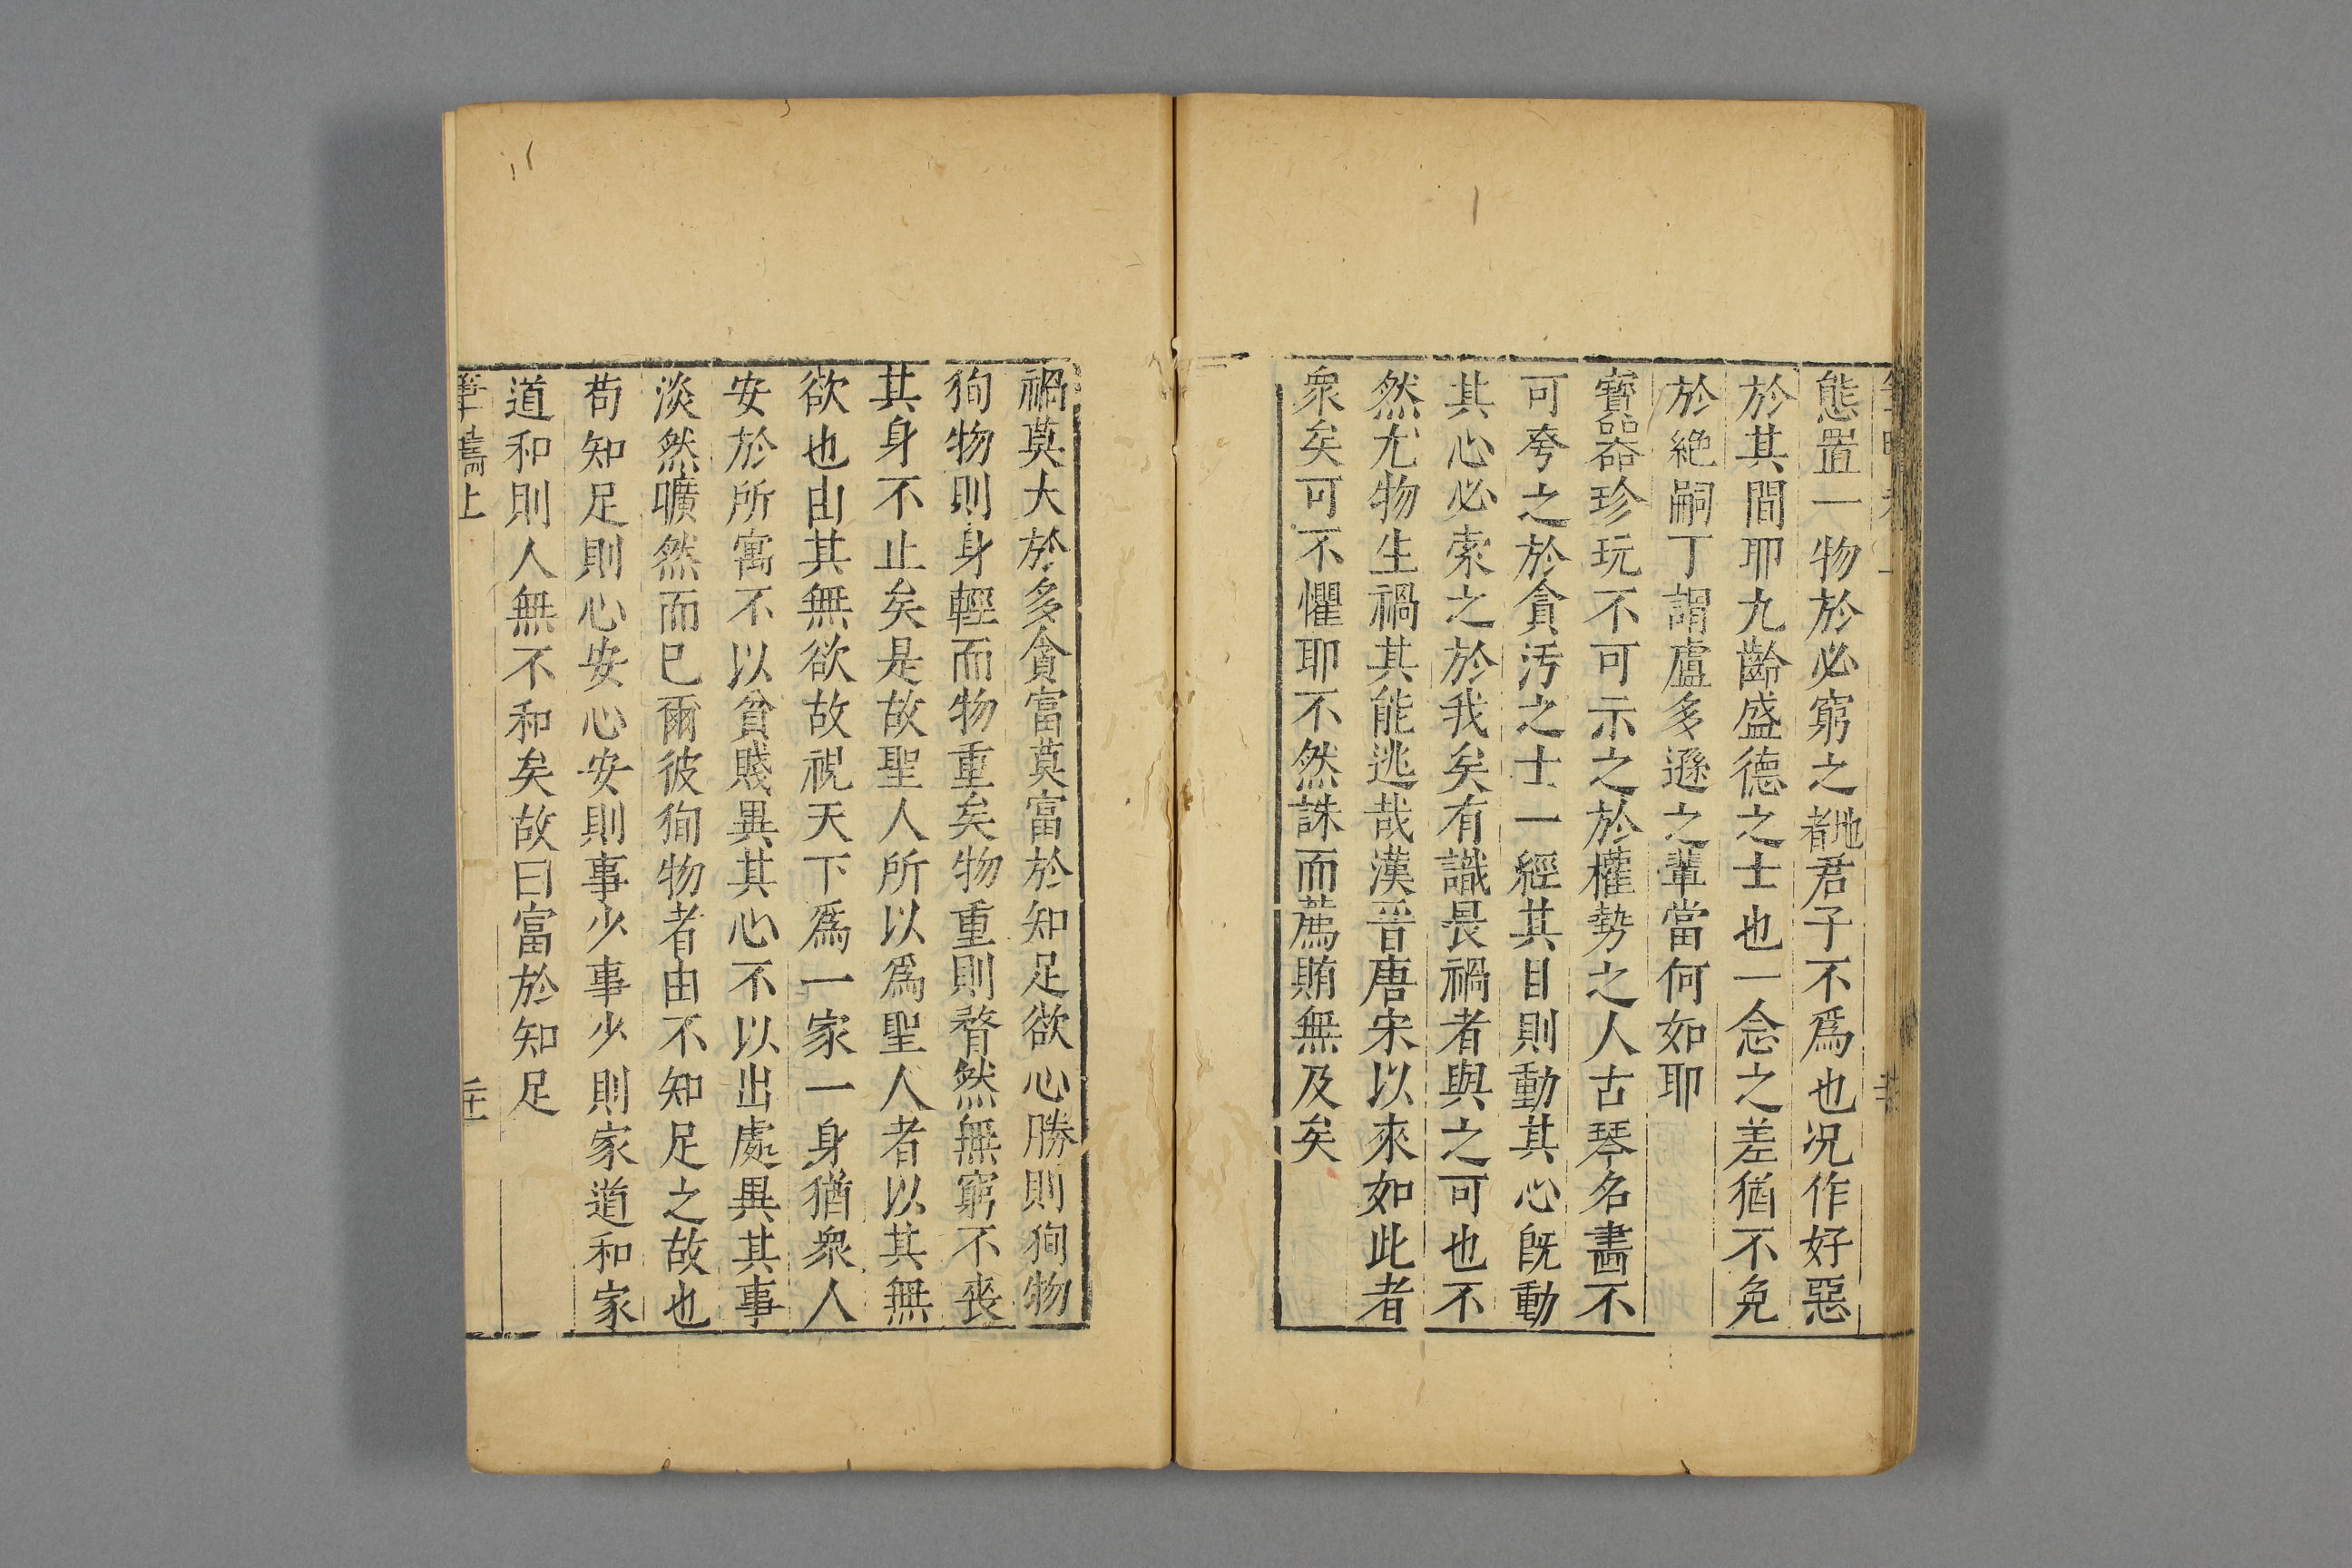 態置一物於必窮之地者君子不爲也況作好惡
於其間耶九齡盛德之士也一念之差猶不免
於絶嗣丁謂盧多遜之輩當何如耶
寶器珍玩不可示之於權勢之人古琴名畵不
可夸之於貪汚之士一經其目則動其心旣動
其心必索之於我矣有識畏禍者與之可也不
然尤物生禍其能逃哉漢晉唐宋以來如此者
衆矣可不懼耶不然誅而薦賄無及矣
禍莫大於多貪富莫富於知足欲心勝則狥物
狥物則身輕而物重矣物重則瞀然無窮不喪
其身不止矣是故聖人所以爲聖人者以其無
欲也由其無欲故視天下爲一家一身猶衆人
安於所寓不以貧賤異其心不以出處異其事
淡然曠然而已爾彼狥物者由不知足之故也
苟知足則心安心安則事少事少則家道和家
道和則人無不和矣故曰富於知足
上